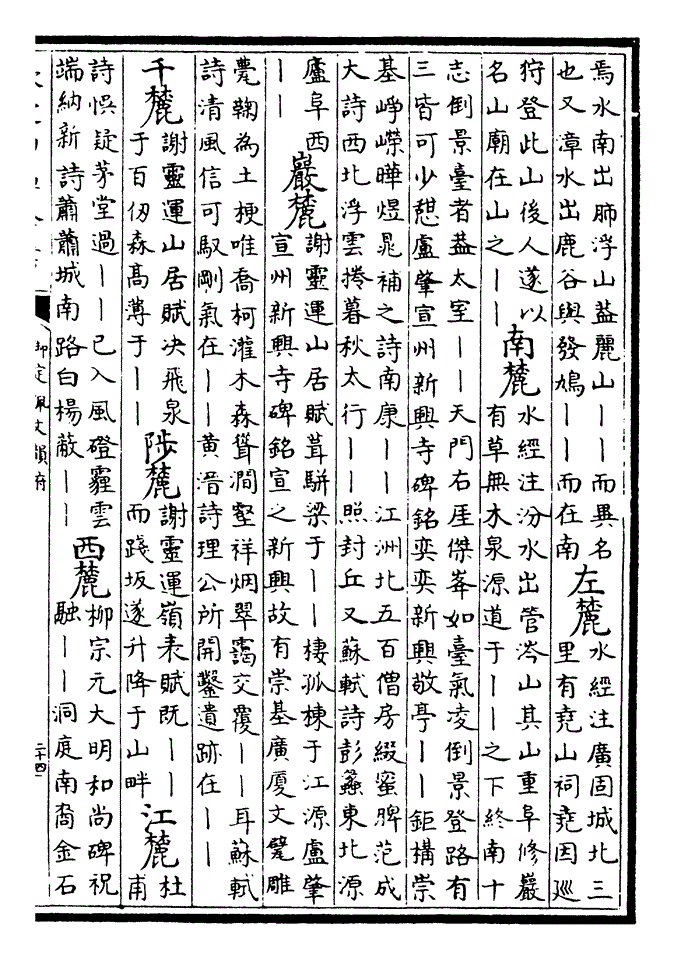 焉水南出肺浮山蓋麗山丨丨而異名
也又漳水出鹿谷與發鳩丨丨而在南
左麓
水經注廣固城北三
里有堯山祠堯因巡
狩登此山後人遂以
名山廟在山之丨丨
南麓
水經注汾水出管涔山其山重阜修巖
有草無木泉源道于丨丨之下終南十
志倒景臺者蓋太室丨丨天門右厓傑峯如臺氣凌倒景登路有
三皆可少憇盧肇宣州新興寺碑銘奕奕新興敬亭丨丨鉅構崇
基崢嶸曄煜晁補之詩南康丨丨江洲北五百僧房綴蜜脾范成
大詩西北浮雲捲暮秋太行丨丨照封丘又蘇軾詩彭蠡東北源
廬阜西
丨丨
巖麓
謝靈運山居賦葺駢梁于丨丨棲孤棟于江源盧肇
宣州新興寺碑銘宣之新興故有崇基廣厦文甓雕
甍鞠為土梗唯喬柯灌木森聳澗壑祥烟翠靄交覆丨丨耳蘇軾
詩清風信可馭剛氣在丨丨黄溍詩理公所開鑿遺跡在丨丨
千麓
謝靈運山居賦决飛泉
于百仞森髙薄于丨丨
陟麓
謝靈運嶺表賦既丨丨
而踐坂遂升降于山畔
江麓
杜
甫
詩悞疑茅堂過丨丨已入風磴霾雲
端納新詩蕭蕭城南路白楊蔽丨丨
西麓
柳宗元大明和尚碑祝
融丨丨洞庭南裔金石
御定佩文韻府
二十四